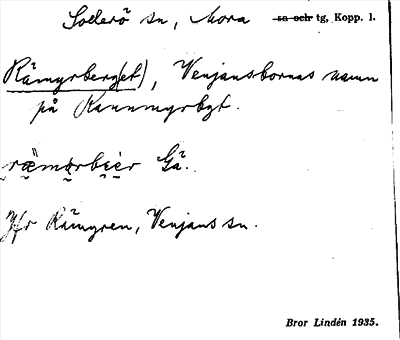 Sollerö sn, Mora sn och tg, Kopp. l.
Råmyrberg(et), Venjansbornas namn
på Rannmyrbgt.
Gä.
Jfr Råmyren, Venjans sn.
Bror Lindén 1935.